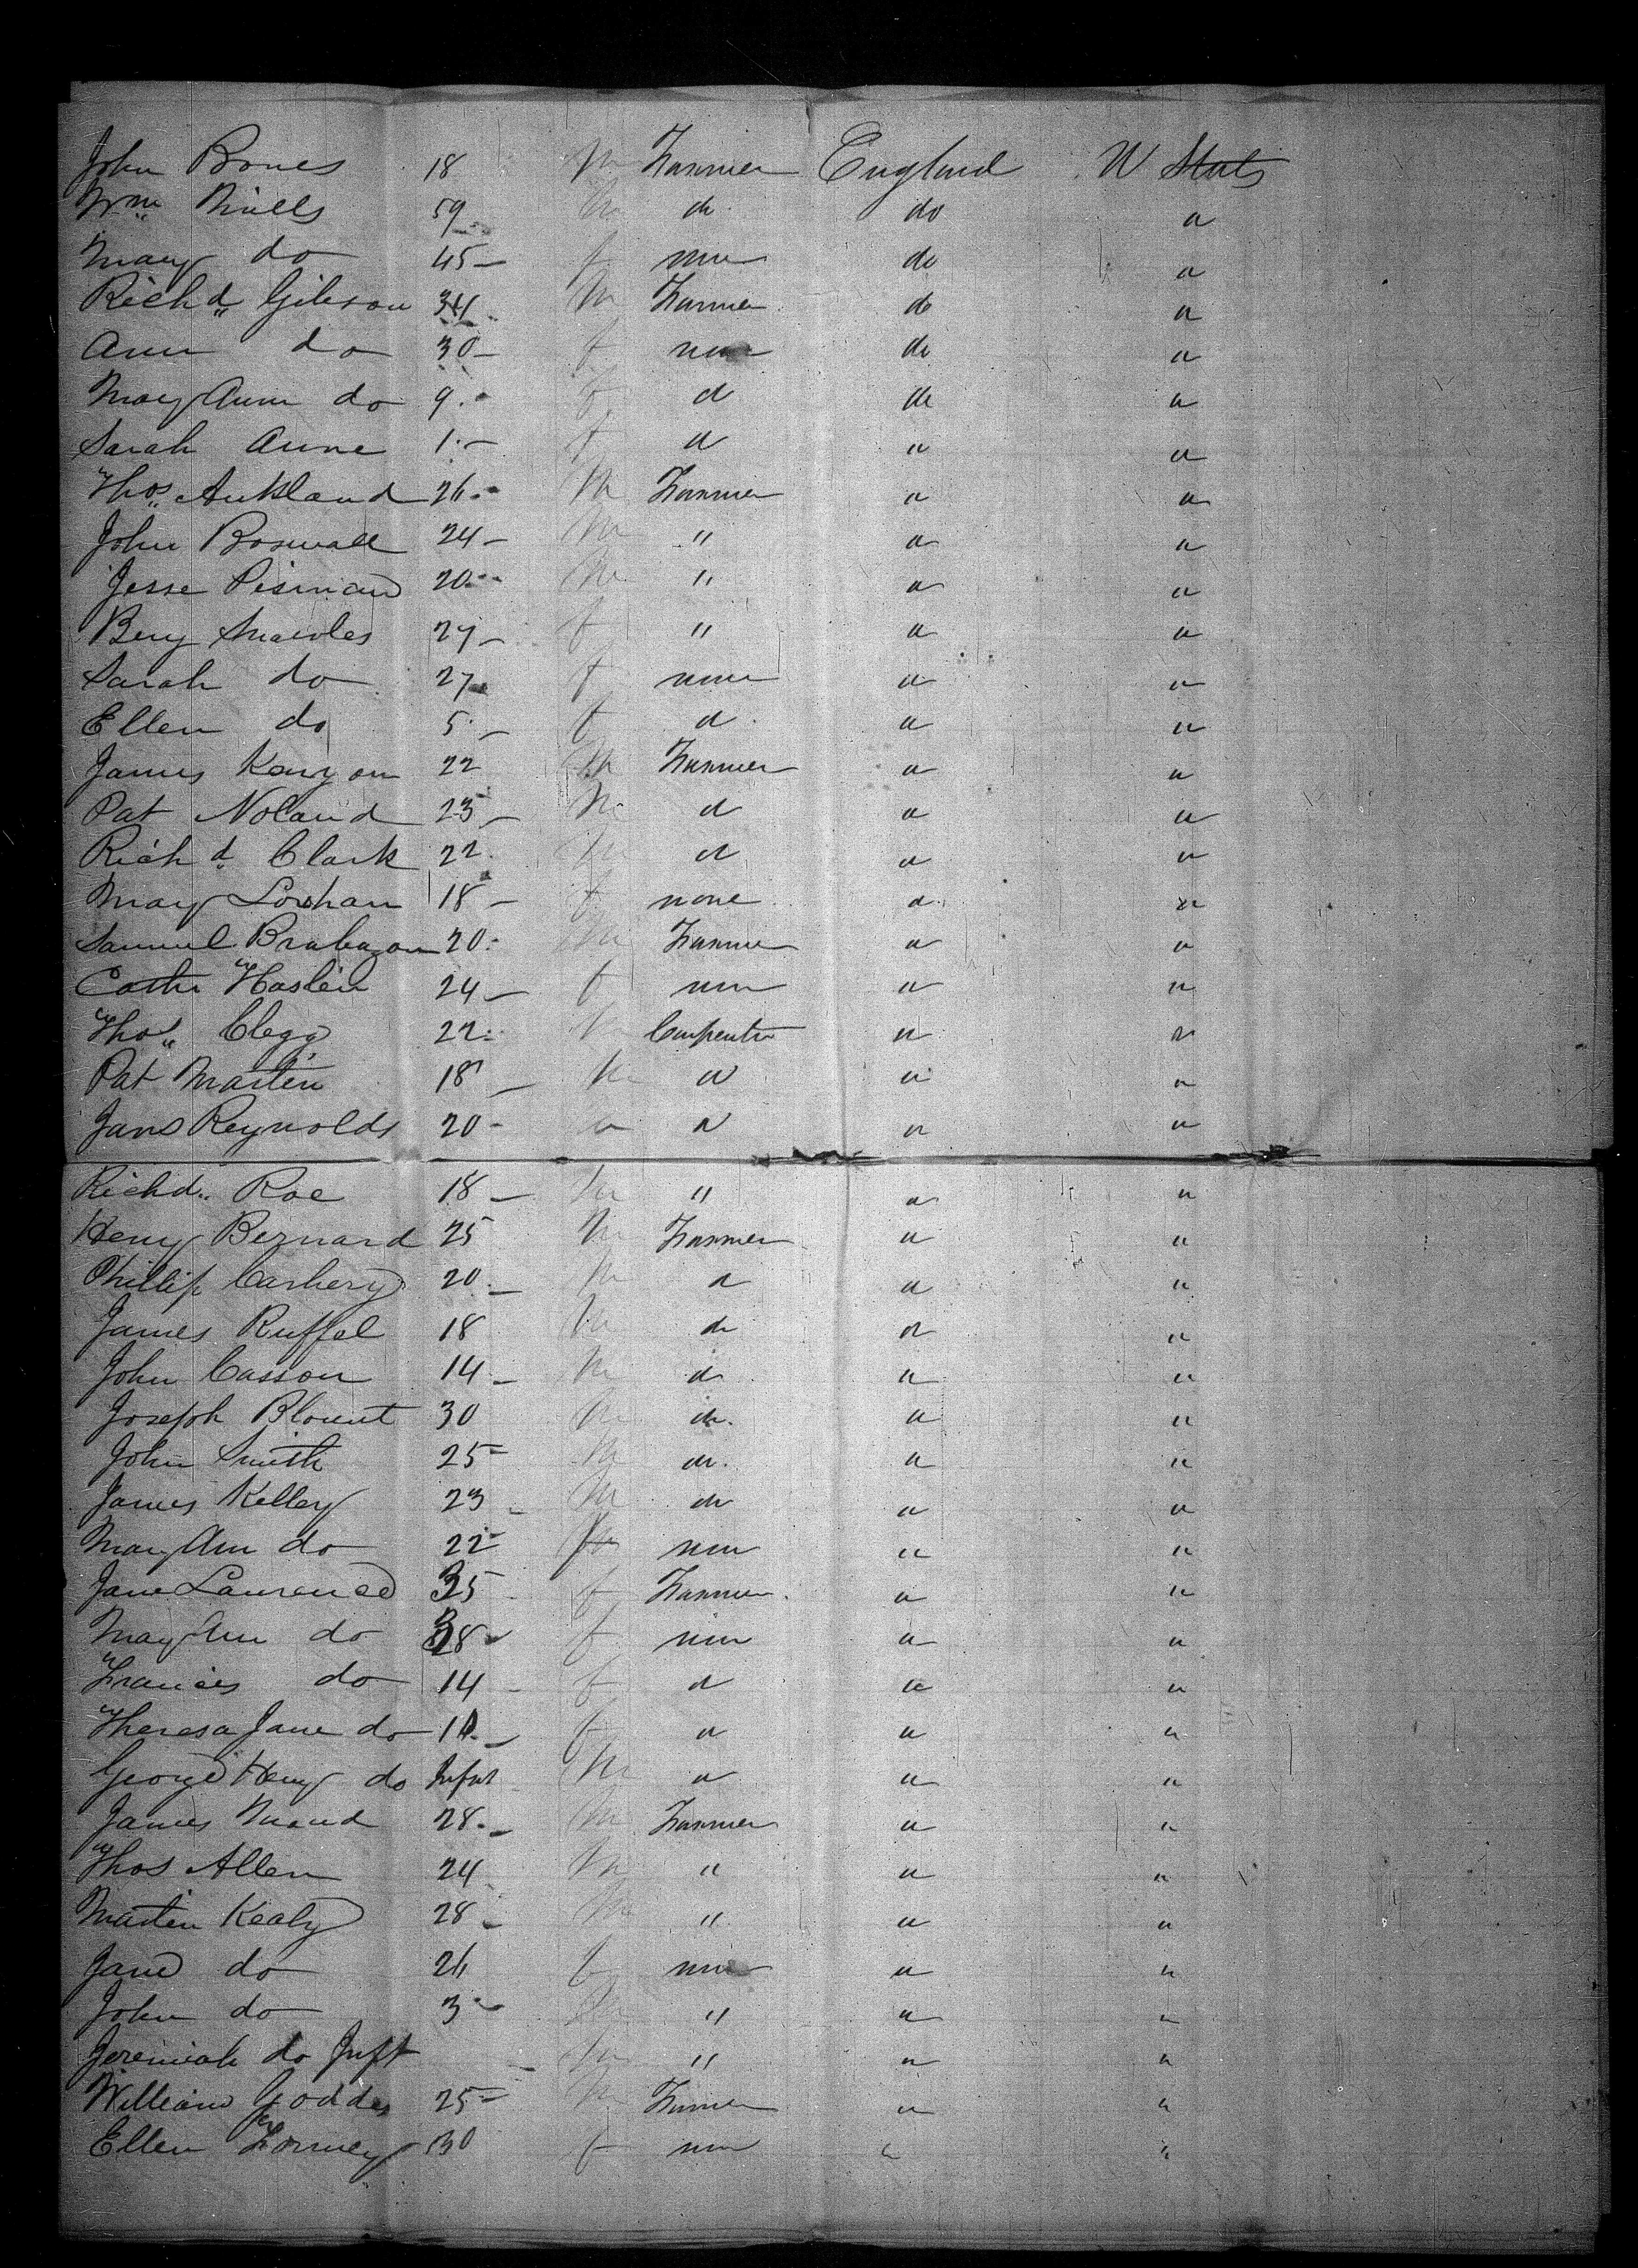 John Bones 18 m Farmer England U Stats
Wm Mills 59 m do do "
Mary do 45 f none do "
Richd Gibson 34 m Farmer do "
Ann do 30 f none do "
Mary Ann do 9 f d do "
Sarah Anne 1 f " " "
Thos Aukland 26 m Farmer " "
John Boswall 24 m " " "
Jesse 20 m " " "
Benj 27 f " " "
Sarah do 27 f none " "
Ellen do 5 f d " "
James Kenyon 22 m Farmer " "
Pat Noland 23 m d " "
Richd Clark 22 m d " "
Mary 18 f none " "
Samuel Brabazon 20 m Farmer " "
Cathe Haslen 24 f none " "
Thos Clegg 22 m Carpenter " "
Pat Martin 18 m " " "
Jams Reynolds 20 m " " "
Richd Roe 18 m " " "
Henry Bernard 25 m Farmer " "
Phillip Carbery 20 m d " "
James Ruffel 18 m do " "
John Casson 14 m do " "
Joseph Blount 30 m do " "
John Smith 25 m do " "
James Kelley 23 m do " "
Mary Ann do 22 none " "
Jane Laurence 35 f Farmer " "
Mary Ann do 38 f none " "
Francis do 14 f d " "
Theresa Jane do 11 f " " "
George Henry do Infnt m " " "
James 28 m Farmer " "
Thos Allen 24 m " " "
Martin Kealy 28 m " " "
Jane do 26 f none " "
John do 3 m " " "
Jeremiah do Inft m " " "
William Goddes 25 m Farmer " "
Ellen 30 f none " "